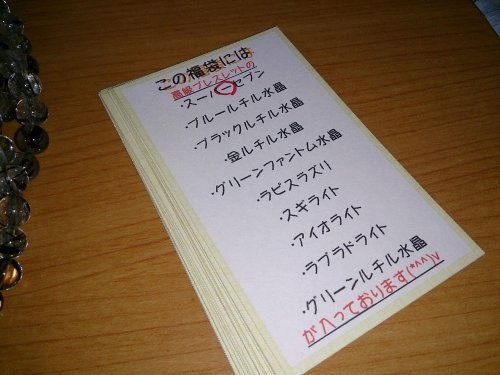 この福袋には
高級ブレスレットの
・スーパーセブン
・ブルールチル水晶
・ブラックルチル水晶
・金ルチル水晶
・グリーンファントム水晶
・ラピスラズリ
・スギライト
・アイオライト
・ラブラドライト
・グリーンルチル水晶
が入っております(*^^)v